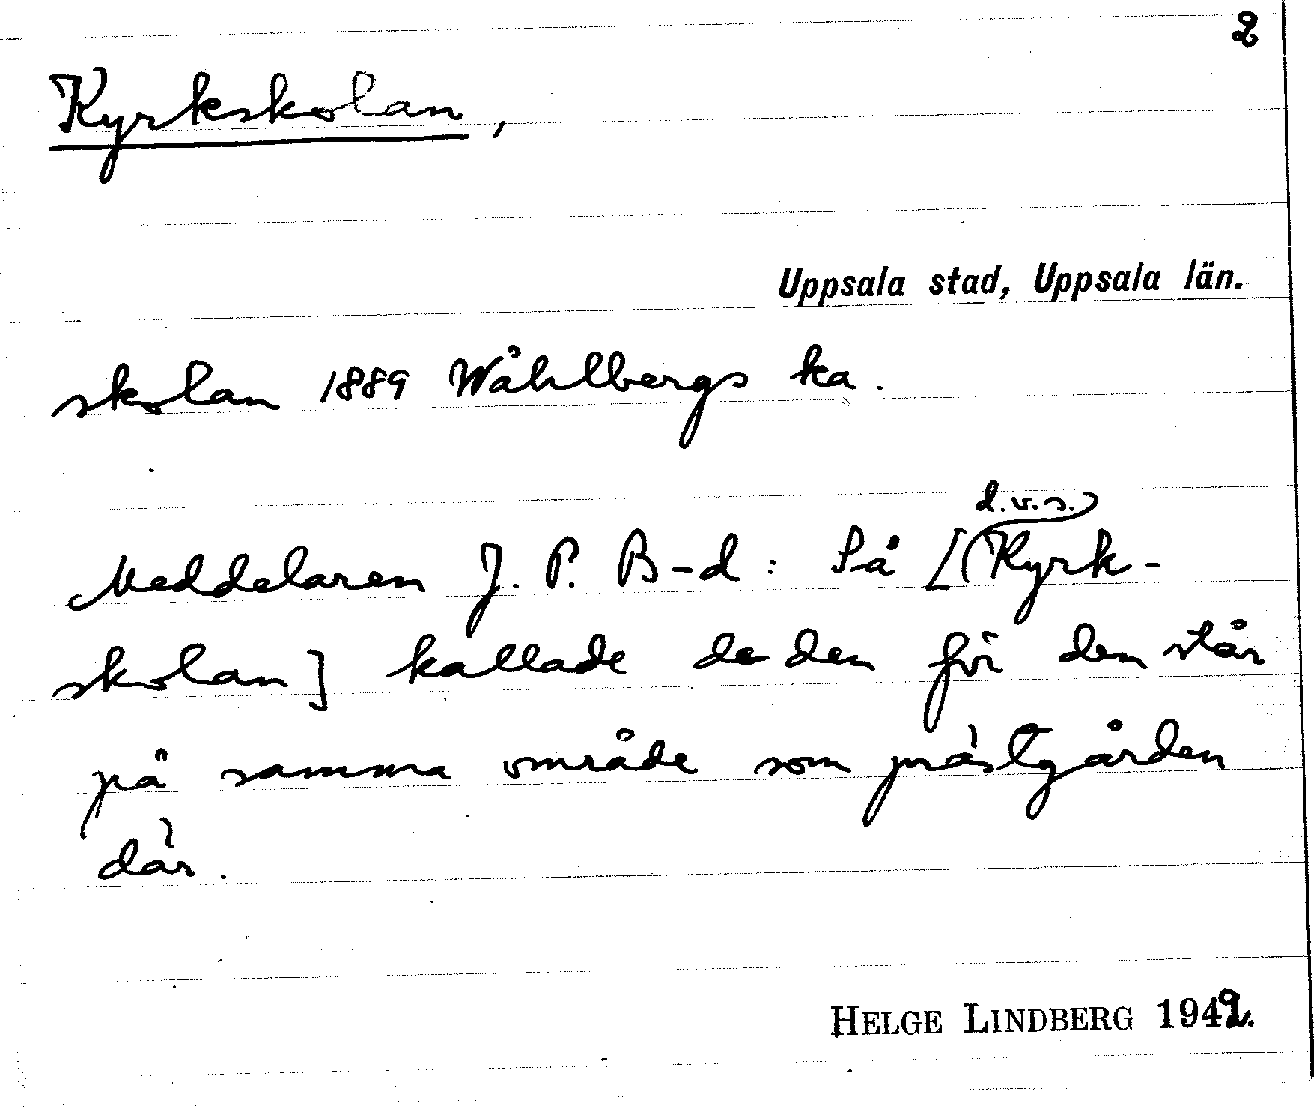 2
Kyrkskolan,
Uppsala stad, Uppsala län.
skolan 1889 Wåhlbergs ka.
d.v.s.
Meddelaren J. P. B-d: Så [(Kyrk-
skolan] kallade de den för den står
på samma område som prästgården
där.
HELGE LINDBERG 1942.